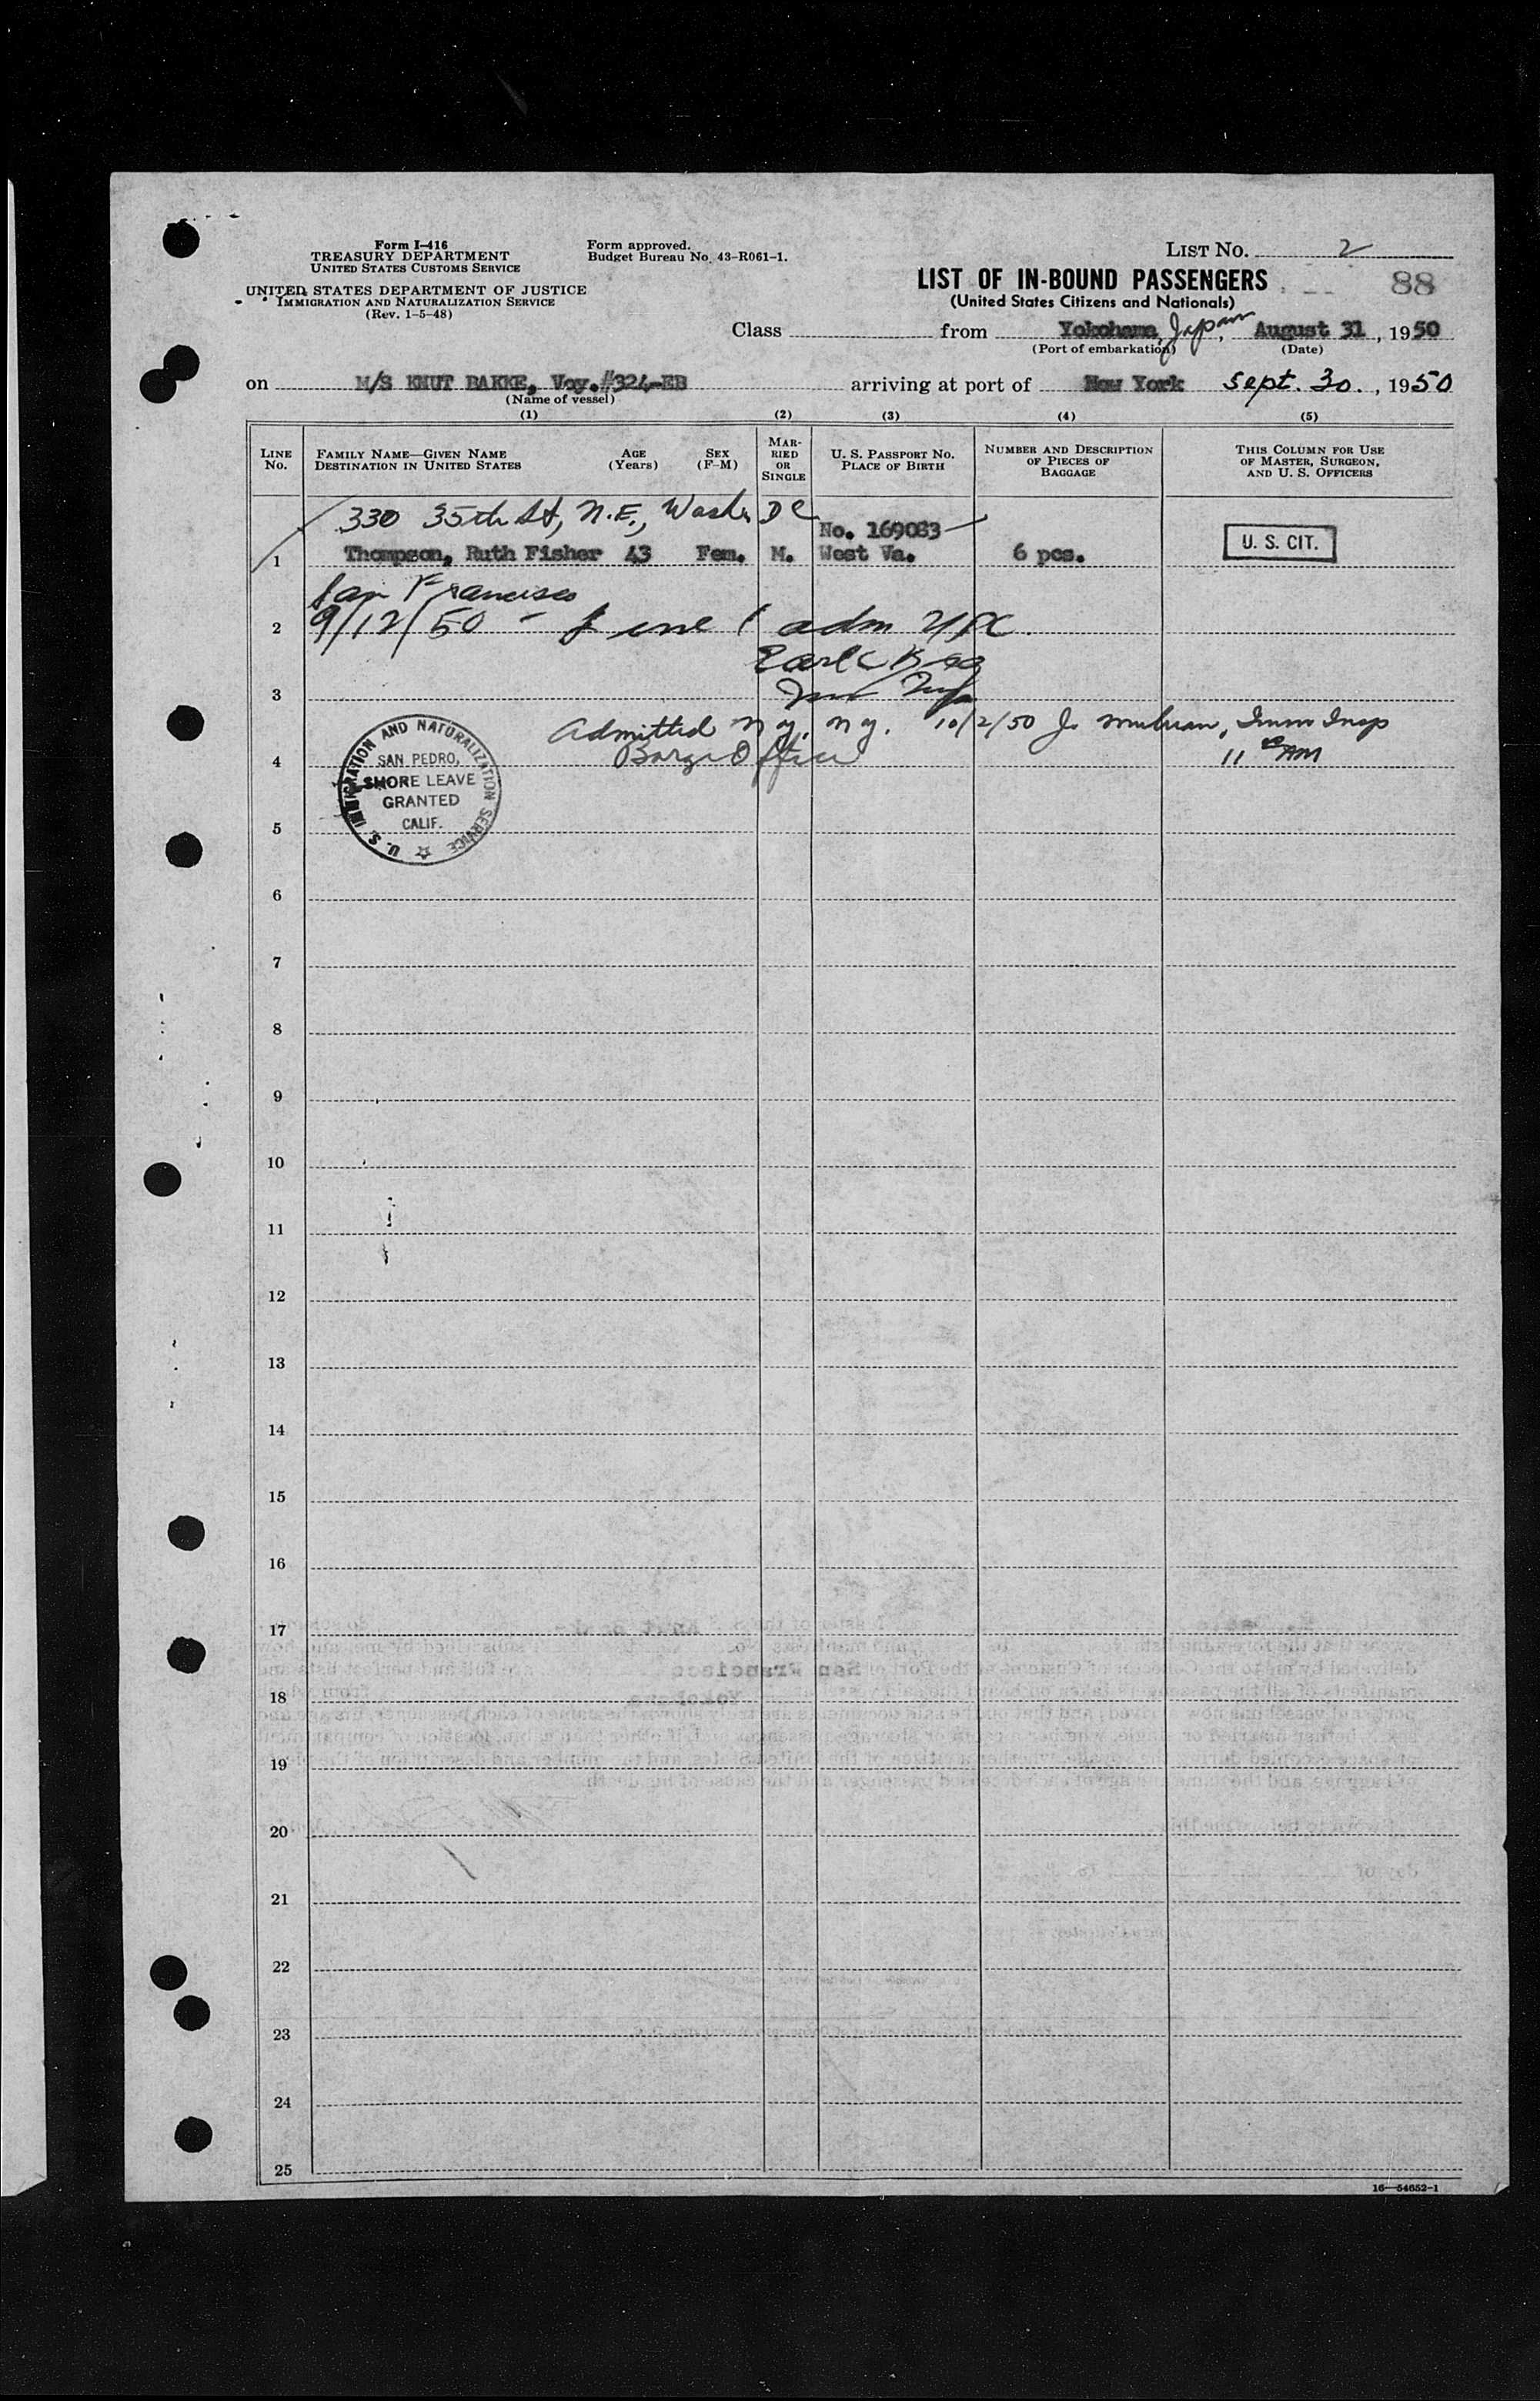 Form I-416
TREASURY DEPARTMENT
UNITED STATES CUSTOMS SERVICE
UNITED STATES DEPARTMENT OF JUSTICE
IMMIGRATION AND NATURALIZATION SERVICE
(Rev. 1-5-48)
Form approved.
Budget Bureau No. 43-R061-1.
LIST NO. 2
LIST OF IN-BOUND PASSENGERS
88
(United States Citizens and Nationals)
Class from Yokohama, Japan, August 31, 1950
(Port of embarkation) (Date)
on M/S KNUT BAKKE, Voy.#324-EB arriving at port of New York Sept. 30., 1950
(Name of vessel)
(1) (2) (3) (4) (5)
LINE NO.
FAMILY NAME—GIVEN NAME
DESTINATION IN UNITED STATES
AGE
(Years)
SEX
(F-M)
MARRIED OR SINGLE
U. S. PASSPORT NO.
PLACE OF BIRTH
NUMBER AND DESCRIPTION
OF PIECES OF
BAGGAGE
THIS COLUMN FOR USE
OF MASTER, SURGEON,
AND U. S. OFFICERS
330 35th St, N.E., Wash DC
No. 169083
1 Thompson, Ruth Fisher 43 Fem. M. West Va. 6 pcs. U. S. CIT.
San Francisco
2 9/12/50 - line 1 adm
Earl C
3
Admitted N.Y. N.Y. 10/2/50 J. Imm Insp
4 Barge Office 11 AM
U. S. IMMIGRATION AND NATURALIZATION SERVICE
SAN PEDRO,
SHORE LEAVE
GRANTED
CALIF.
5
6
7
8
9
10
11
12
13
14
15
16
17
18
19
20
21
22
23
24
25
16—54652-1